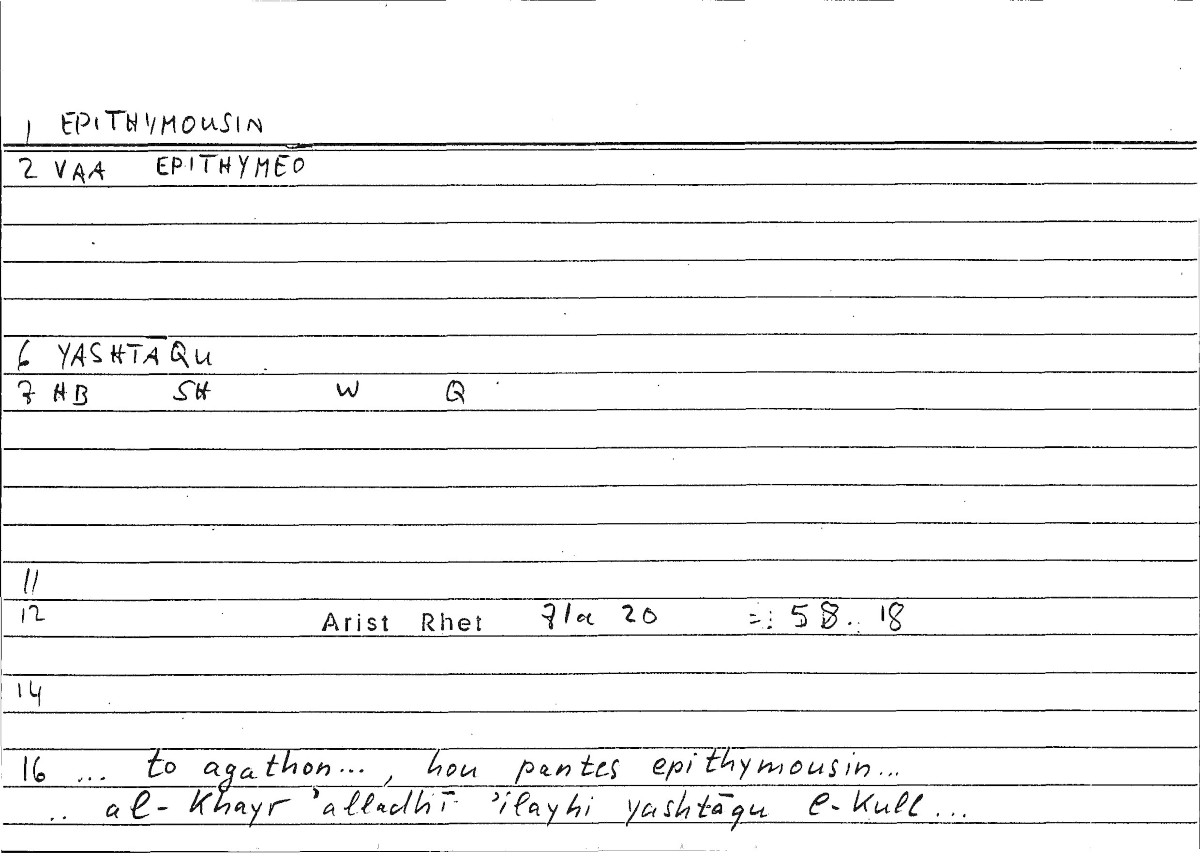 1 EPITHYMOUSIN
2 VAA EPITHYMEO
6 YASHTĀQU
7 HB SH W Q
11
12 Arist Rhet 71a 20 =: 58.. 18
14
16 ... to agathon..., hou pantes epithymousin...
.. al-Khayr 'alladhī 'ilayhi yashtāqu l-Kull...